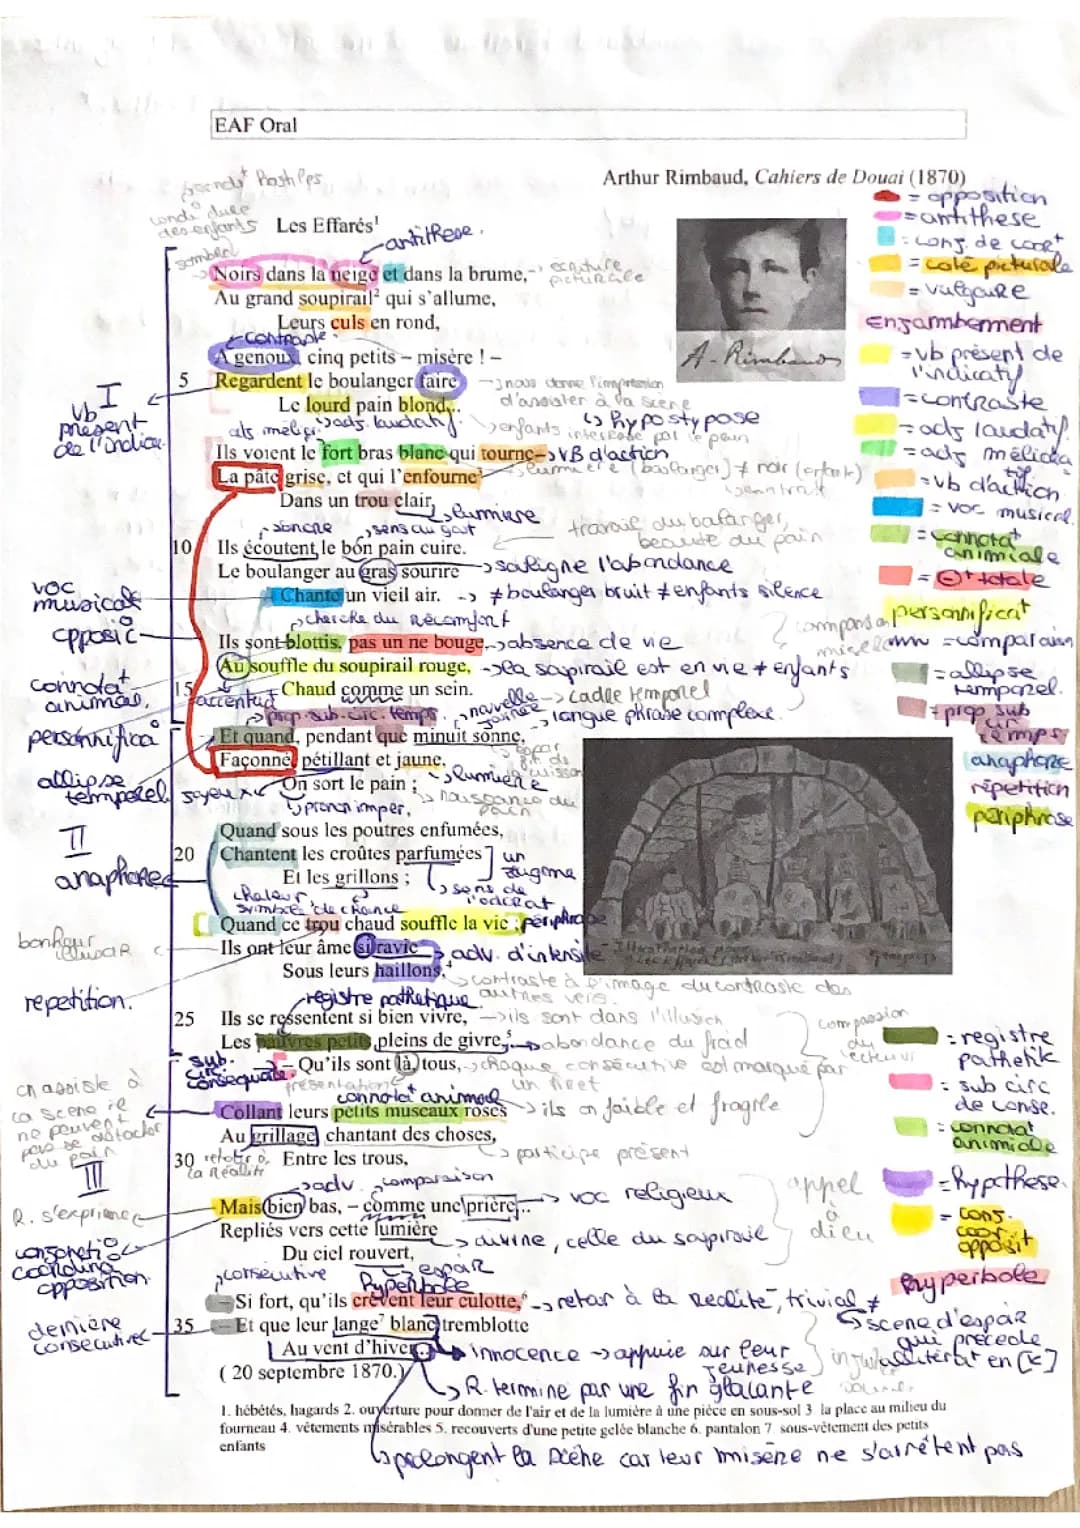 EAF Oral
Arthur Rimbaud, Cahiers de Douai (1870)
condi° dure
des enfants
Les Effarés¹
antithèse.
sombre
Noirs dans la neige et dans la brume,
écriture
picturale
Au grand soupirail² qui s'allume,
Leurs culs en rond,
contraste
A genoux, cinq petits – misère ! –
5 Regardent le boulanger faire
→ nous donne l'impression
d'assister à la scène
Le lourd pain blond...
↳ hypotypose
I
vb
présent
de l'indica
adj. laudatif.
enfants intéressé par le pain
Ils voient le fort bras blanc qui tourne → VB d'action
lumière (boulanger) ≠ noir (enfant)
La pâte grise, et qui l'enfourne
Dans un trou clair,
↳ lumière
sens au gout
travail du boulanger,
beauté du pain
10 Ils écoutent le bon pain cuire.
Le boulanger au gras sourire
→ souligne l'abondance
Chante un vieil air.
-> ≠ boulanger bruit ≠ enfants silence
voc
musical
opposi°
cherche du réconfort
Ils sont blottis, pas un ne bouge,
→ absence de vie
Au souffle du soupirail rouge,
→ la soupirail est en vie ≠ enfants
connota°
animal,
15 Chaud comme un sein.
nouvelle
journée
→ cadre temporel
→ longue phrase complexe.
→ prop. sub. circ. temps.
personnifica°
Et quand, pendant que minuit sonne,
Façonné, pétillant et jaune,
↳ lumière
On sort le pain ;
joyeux
↳ pronom imper,
naissance du
pain
allipse
temporel
II
Quand sous les poutres enfumées,
20 Chantent les croûtes parfumées
un
zeugma
Et les grillons ;
↳ sens de
l'odorat
anaphore
chaleur,
symbole de chance
Quand ce trou chaud souffle la vie ;
périphrase
Ils ont leur âme si ravie
→ adv. d'intensité
bonheur
illusoir
Sous leurs haillons,⁴
→ contraste à l'image du contraste des
autres vers.
répétition.
registre pathétique
25 Ils se ressentent si bien vivre,
→ ils sont dans l'illusion
Les pauvres petits pleins de givre,⁵
→ abondance du froid
compassion
du
lecteur
sub.
circ
conséquate
– Qu'ils sont là, tous,
→ chaque consécutive est marqué par
un tiret
présentation
connota° animal
Collant leurs petits museaux roses
→ ils on faible et fragile
on assiste à
la scène il
ne peuvent
pas se détacher
du pain
Au grillage, chantant des choses,
↳ participe présent
30 Entre les trous,
retour à
la réalité
III
adv
comparaison
Mais bien bas, – comme une prière...
→ voc religieux
appel
à
dieu
R. s'exprime
Repliés vers cette lumière
→ divine, celle du soupirail
Du ciel rouvert,
→ espoir
conjoncti°
coordina°
opposition.
consécutive
hyperbole
– Si fort, qu'ils crèvent leur culotte,⁶
→ retour à la réalité, trivial ≠
scène d'espoir
qui précède
dernière
consécutive
35 – Et que leur lange⁷ blanc tremblotte
allitérat° en [k]
Au vent d'hiver...
innocence → appuie sur leur
jeunesse
( 20 septembre 1870.)
↳ R. termine par une fin glaçante
1. hébétés, hagards 2. ouverture pour donner de l'air et de la lumière à une pièce en sous-sol 3. la place au milieu du
fourneau 4. vêtements misérables 5. recouverts d'une petite gelée blanche 6. pantalon 7. sous-vêtement des petits
enfants
↳ prolongent la scène car leur misère ne s'arrêtent pas
A-Rimbaud
= opposition
= antithèse
= conj. de coor°
= coté picturale
= vulgaire
enjambement
= vb présent de
l'indicatif
= contraste
= adj laudatif.
= adj mélioratif
= vb d'action.
= voc musical.
= connotat°
animale
totale
personnificat°
= comparaison
= allipse
temporel.
= prop sub
cir
temps
anaphore
répétition
périphrase
= registre
pathétik
= sub circ
de conse.
= connotat°
animiale
= hypothèse.
= conj.
coor
opposit
hyperbole